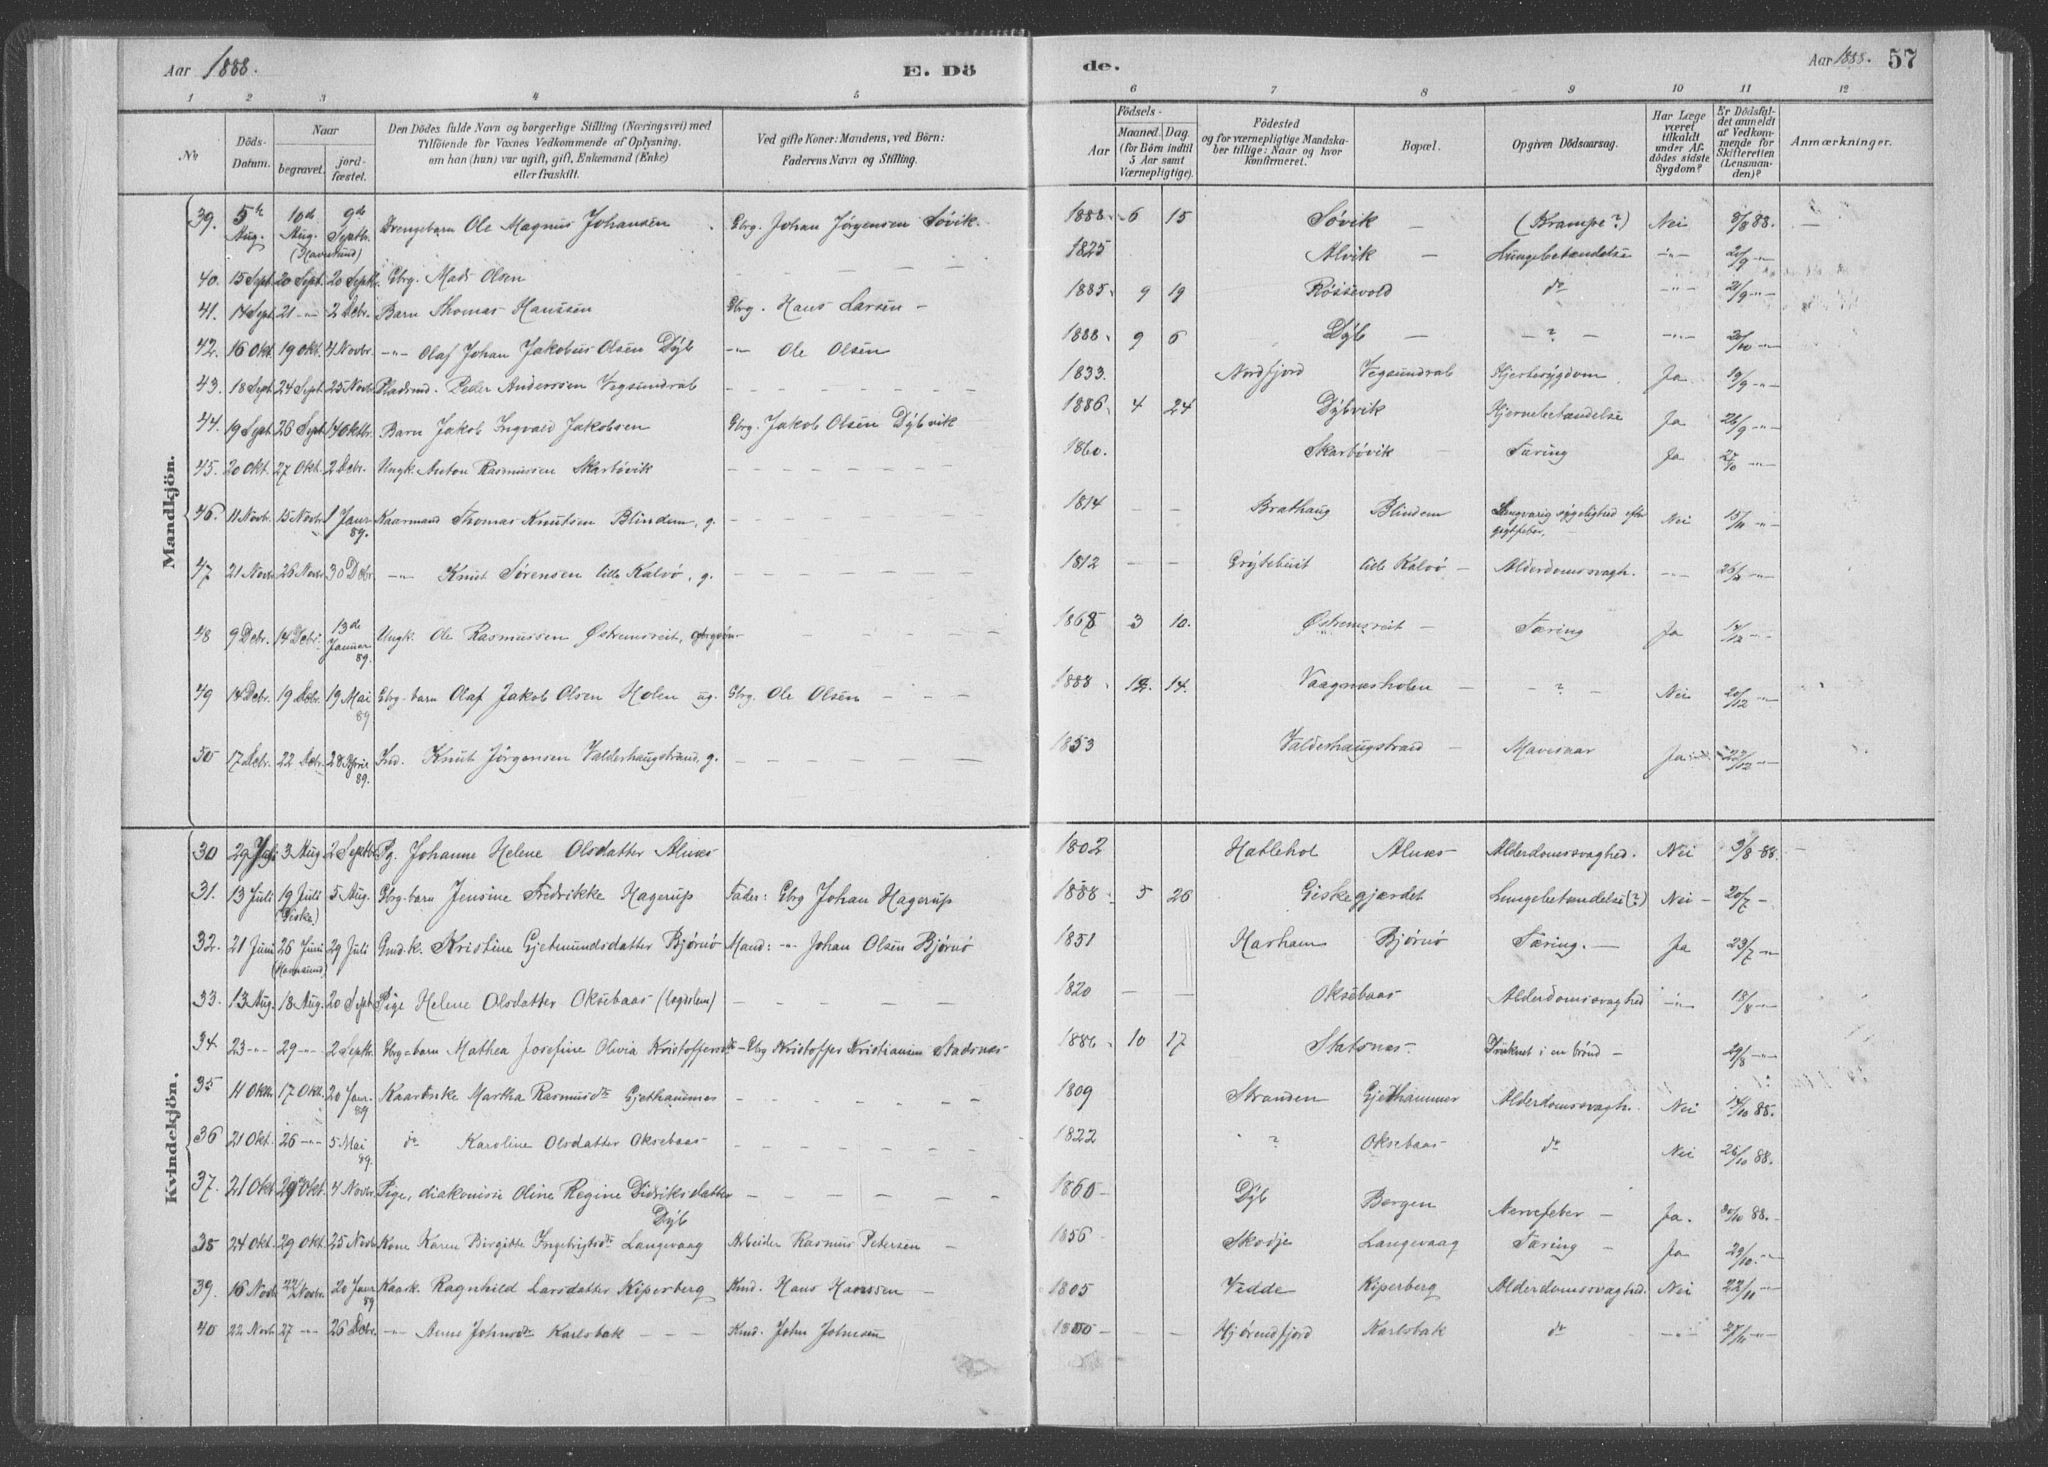 Aar 1888.
E. Dö
de.
Aar 1888. 57
1 2 3 4 5 6 7 8 9 10 11 12
No
Döds-Datum.
Naar
begravet.
jord-fæstet.
Den Dödes fulde Navn og borgerlige Stilling (Næringsvei) med
Tilföiende for Voxnes Vedkommende af Oplysning,
om han (hun) var ugift, gift, Enkemand (Enke)
eller fraskilt.
Ved gifte Koner: Mandens, ved Börn:
Faderens Navn og Stilling.
Födsels-
Aar
Maaned. Dag.
(for Börn indtil
5 Aar samt
Værnepligtige).
Födested
og for værnepligtige Mandska-
ber tillige: Naar og hvor
konfirmeret.
Bopæl.
Opgiven Dödsaarsag.
Har Læge
været
tilkaldt
under Af-
dödes sidste
Sygdom?
Er Dödsfal-
det anmeldt
af Vedkom-
mende for
Skifteretten
(Lensman-
den)?
Anmærkninger.
Mandkjön.
39. 5te Aug. 10de Aug. (Havsund) 9de Septbr. Drengebarn Ole Magnus Johansen Gbrg. Johan Jørgensen Søvik. 1888. 6 15 Søvik — (Krampe?) Nei 8/8 88. —
40. 15 Sept. 20 Sept. 20 Septb. Gbrg. Mads Olsen — — — — 1825 Alvik — Lungebetændelse -"- 20/9 -"-
41. 14 Sept. 21 -"- 2 Debr. Barn Thomas Hanssen Gbrg. Hans Larsen — 1885. 9 19 Røssevold do -"- 21/9 -"-
42. 16 Okt. 19 Okt. 4 Novbr. -"- Olaf Johan Jakobus Olsen Dyb -"- Ole Olsen 1888. 9 6 Dyb — — ? — -"- 20/10 -"-
43. 18 Sept. 24 Sept. 25 Novbr. Pladsmd. Peder Anderssen Vegsundral — — — — 1833. Nordfjord Vegsundral Hjertesygdom Ja 19/9 -"-
44. 19 Sept. 26 Sept. 14 Oktbr. Barn Jakob Ingvald Jakobsen Gbrg. Jakob Olsen Dybvik 1886. 4 24 Dybvik Hjernebetændelse Ja 26/9 -"-
45. 20 Okt. 27 Okt. 2 Debr. Ungk. Anton Rasmussen Skarbøvik — — — — 1860. Skarbøvik Tæring Ja 27/10 -"-
46. 11 Novbr. 15 Novbr. 1 Janr. 89. Kaarmand Thomas Knutsen Blindem, g. — — — — 1814 — — Brathaug Blindem Langvarig sygelighed efter gigtfeber, Nei 15/11 -"-
47 21 Novbr. 26 Novbr. 30 Debr. -"- Knut Sørensen lille Kalvø, g. — — — — 1812 — — Grytebust lille Kalvø — Alderdomssvagh. -"- 26/11 -"-
48 9 Debr. 14 Debr. 13de Januar 89. Ungk. Ole Rasmussen Østremsreit, — — — — 1868 3 10. Østremsreit — Tæring Ja 14/12 -"-
49 14 Debr. 19 Debr. 19 Mai 89 Gbrg.barn Olaf Jakob Olsen Holen ug. Gbrg. Ole Olsen — — — 1888. 12. 14. Vaagnæsholen — — ? — Nei 20/12 -"-
50 17 Debr. 22 Debr. 28 April 89. Ind. Knut Jørgensen Valderhaugstrand, g. — — — — 1853 Valderhaugstrand — Mavesaar Ja 22/12 -"-
Kvindekjön.
30 29 Juli 3 Aug. 2 Septbr. Pg. Johanne Helene Olsdatter Alnæs 1802 Hatlehol Alnæs Alderdomssvaghed. Nei 3/8 88. —
31. 13 Juli 19 Juli (Giske) 5 Aug. Gbrg-barn Jensine Fredrikke Hagerup Fader: Gbrg Johan Hagerup 1888 5 26 Giskegjærdet Lungebetændelse (?) Nei — 20/7 —
32. 21 Juni 26 Juni (Havnsund) 29 Juli Gmd.k. Kristine Gjetmundsdatter Bjørnø Mand: -"- Johan Olsen Bjørnø 1851 Harham Bjørnø Tæring. — Ja 23/7 -"-
33. 13 Aug. 18 Aug. 20 Sept. Pige Helene Olsdatter Oksebaas (legdslem) — — — — 1820 — — Oksebaas Alderdomssvaghed -"- 18/8 -"-
34. 23 -"- 29 -"- 2 Septbr. Gbrg-barn Mathea Josefine Olivia Kristoffersdtr — Gbrg Kristoffer Kristiansen Stadsnæs 1886 10 17 Statsnæs. Druknet i en brønd — 29/8 -"-
35 11 Oktb. 17 Okt. 20 Janr. 89 Kaarenke Martha Rasmusdtr Gjethammer — — — — 1809 Stranden Gjethammer Alderdomssvagh. Nei 14/10 88.
36 21 Okt. 26 -"- 5 Mai 89. do Karoline Olsdatter Oksebaas — — — — 1822 ? Oksebaas do Nei 26/10 88.
37. 21 Okt. 29 Okt. 4 Novbr. Pige, diakonisse Oline Regine Didriksdatter Dyb — — — — 1860 — Dyb Bergen Nervefeber — Ja. 30/10 88.
38 24 Okt. 29 Okt. 25 Novbr. Kone Karen Birgitte Ingebrigtsdtr Langevaag Arbeider Rasmus Petersen — 1856 Skodje Langevaag Tæring — Ja 29/10. -"-
39. 16 Novbr. 22 Novbr. 20 Janr 89 Kaark. Ragnhild Larsdatter Kiperberg Kmd. Hans Hanssen — 1805 Vedde Kiperberg Alderdomssvaghed. Nei 22/11 -"-
40 22 Novbr. 27 -"- 26 Debr. -"- Anne Johnsdtr Karlsbak — — — Kmd. John Johnsen — — Hjørendfjord Karlsbak do -"- 27/11 -"-